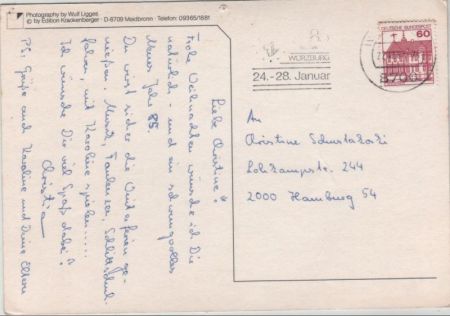 Photography by Wulf Ligges
© by Edition Krackenberger · D-8709 Maidbronn · Telefon: 09365/1881
Liebe Christine!
Frohe Weihnachten wünsche ich Dir
natürlich - und ein schwungvolles
Neues Jahr 85.
Du wirst sicher die Winterferien ge-
nießen. Musik, Faulenzen, Schlittschuh
fahren, mit Karoline spielen.....
Ich wünsche Dir viel Spaß dabei!
Christia
PS: Grüße auch Karoline und Deine Eltern
WÜRZBURG
24.-28. Januar
DEUTSCHE BUNDESPOST
60
An
Christine
Lohkampstr. 244
2000 Hamburg 54